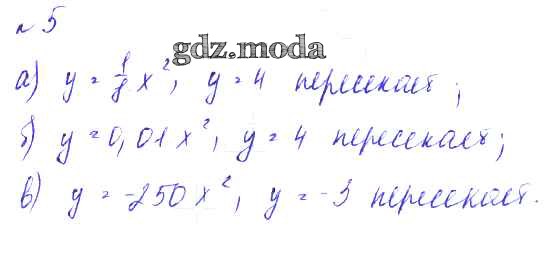 №5
gdz.moda
а) y = 1/8 x², y = 4 пересекает;
б) y = 0,01x², y = 4 пересекает;
в) y = -250x², y = -3 пересекает.